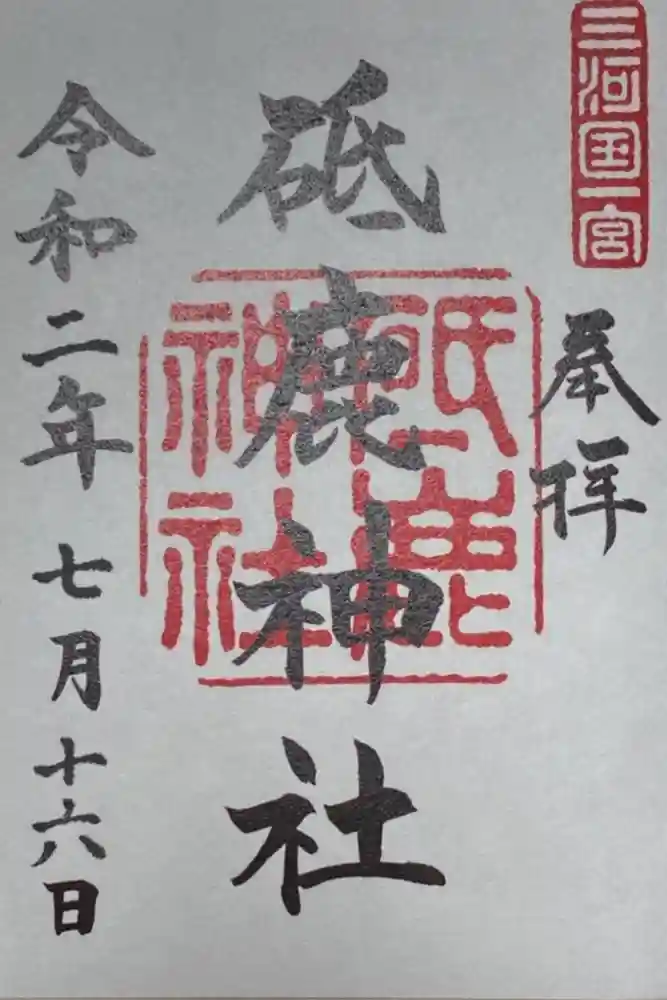 三河国一宮
奉拝
砥鹿神社
砥鹿
神社
令和二年七月十六日